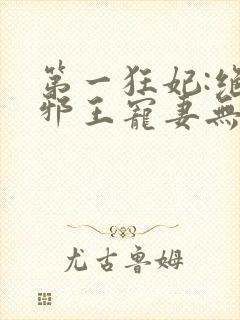 第一狂妃:绝
邪王寵妻無
尤古魯姆